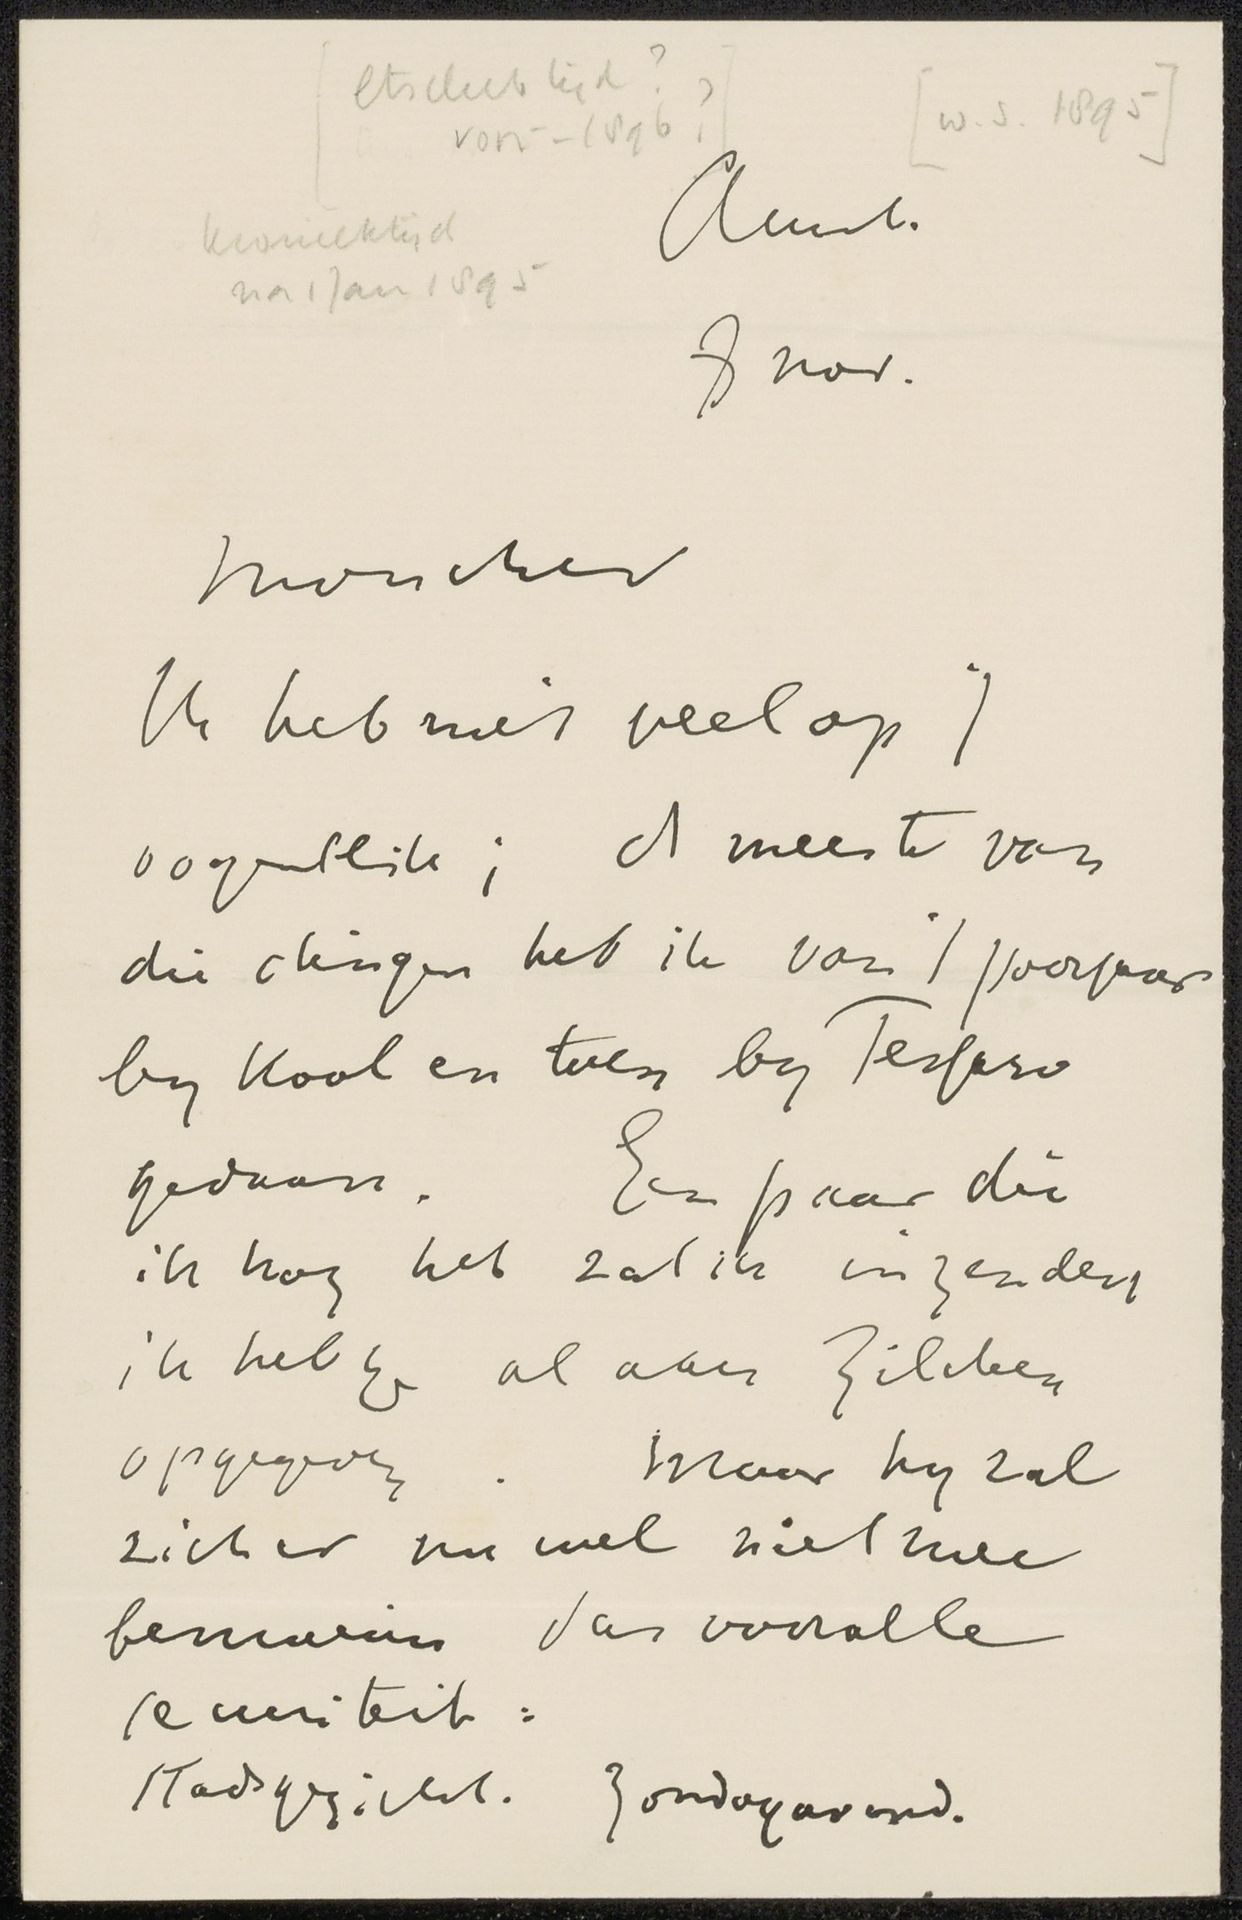 [Etsclub tijd?
voor - 1896?]
[w.s. 1895]
kroniektijd
na 1 Jan 1895
Amst.
7 nov.
Moncher
Ik heb niet veel op 't
oogenblik; 't meeste van
die dingen heb ik van 't voorjaar
by Kool en toen by Tersteeg
gedaan. Een paar die
ik nog heb zal ik inzenden
ik heb ze al aan Zilcken
opgegeven. Maar hy zal
zich er nu wel niet mee
bemoeien dus voor alle
securiteit:
Stadsgezicht. Zondagavond.